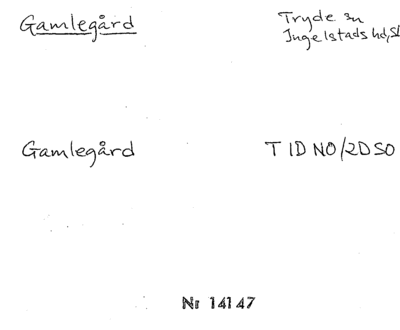 Gamlegård
Tryde sn
Ingelstads hd, Sk
Gamlegård
T 1D NO/2D SO
Nr 14147